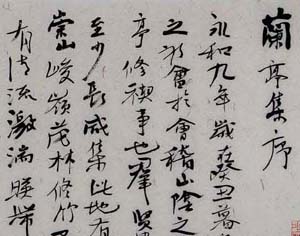 蘭亭集序
永和九年歲在癸丑暮
之初會於會稽山陰之
亭修禊事也羣賢
至少長咸集此地有
崇山峻嶺茂林修竹又
有清流激湍映帶